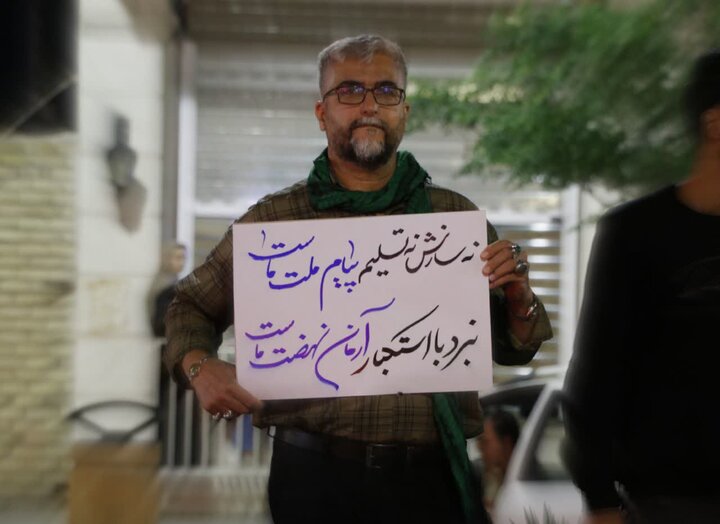 نه سازش نه تسلیم پیام ملت ماست
نبرد با استکبار آرمان نهضت ماست